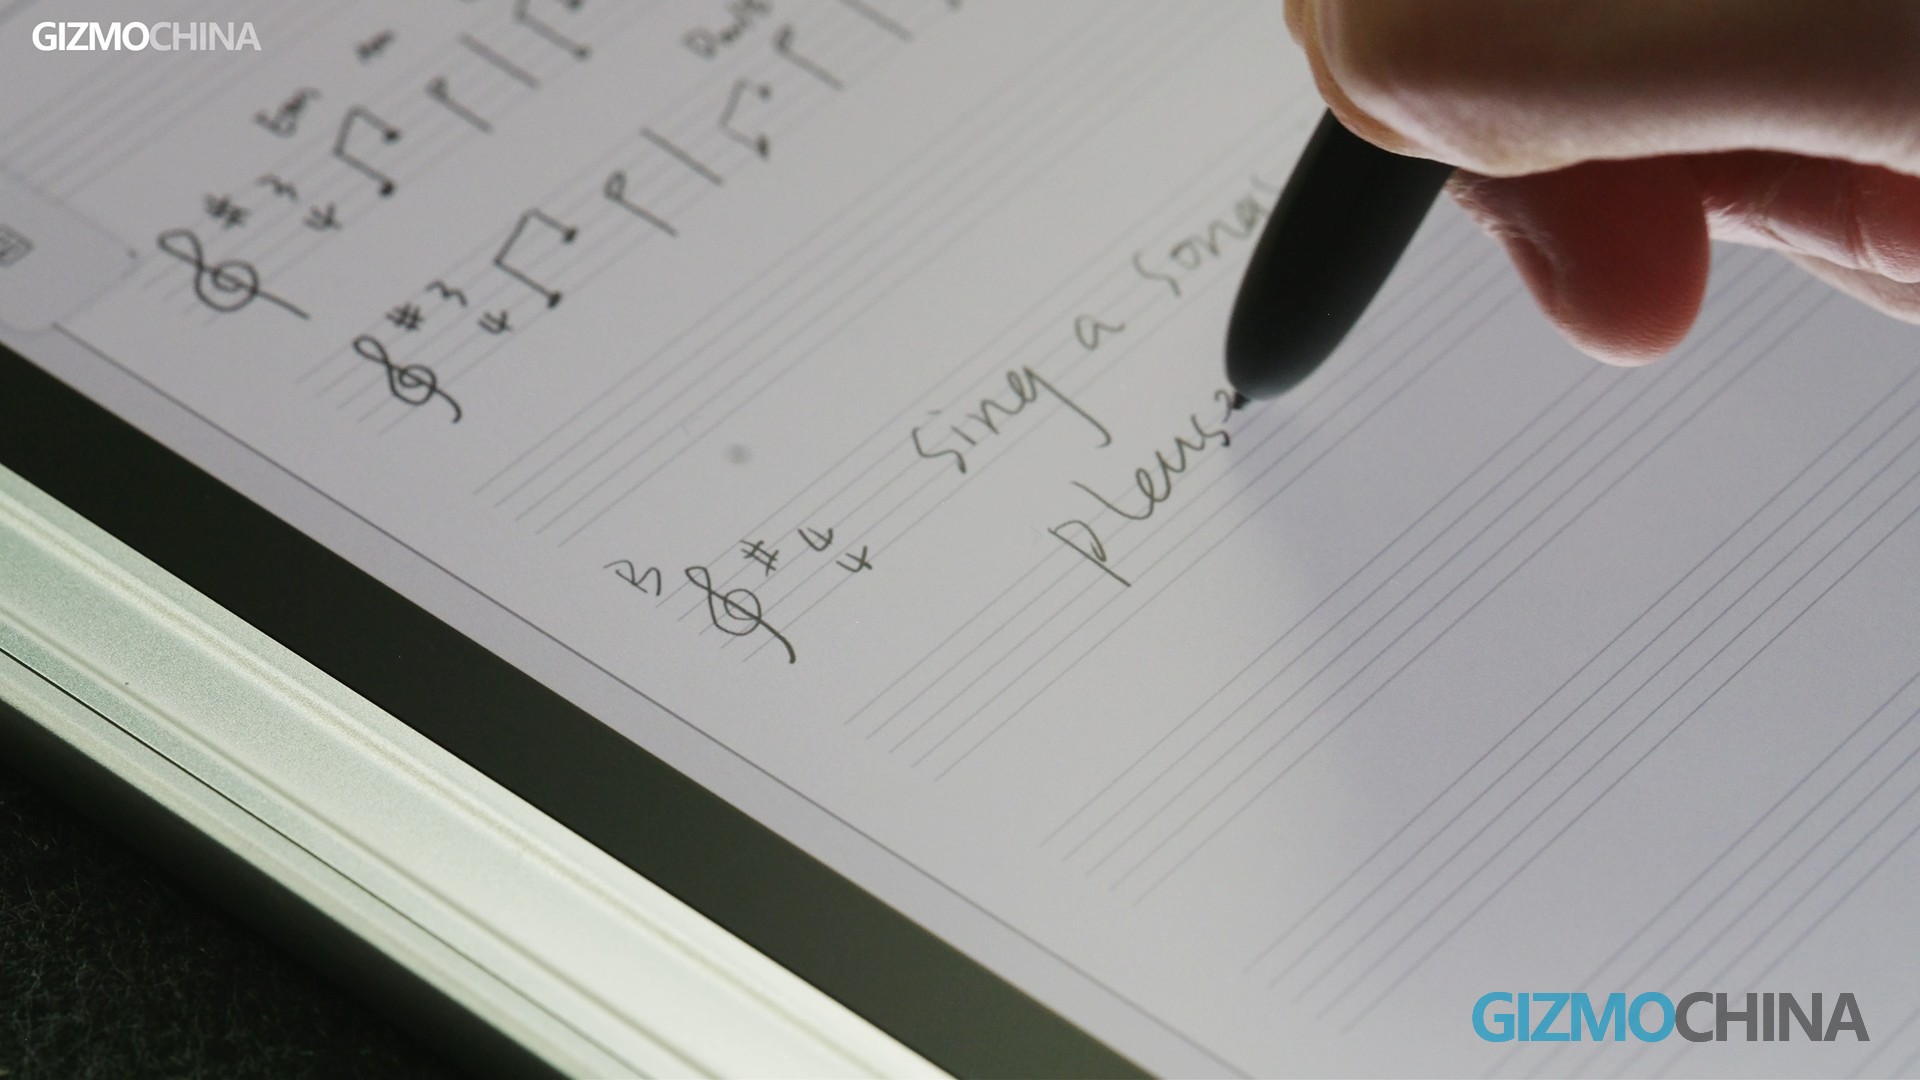 GIZMOCHINA
# 3
4
# 3
4
B # 4
4
sing a song
please
GIZMOCHINA